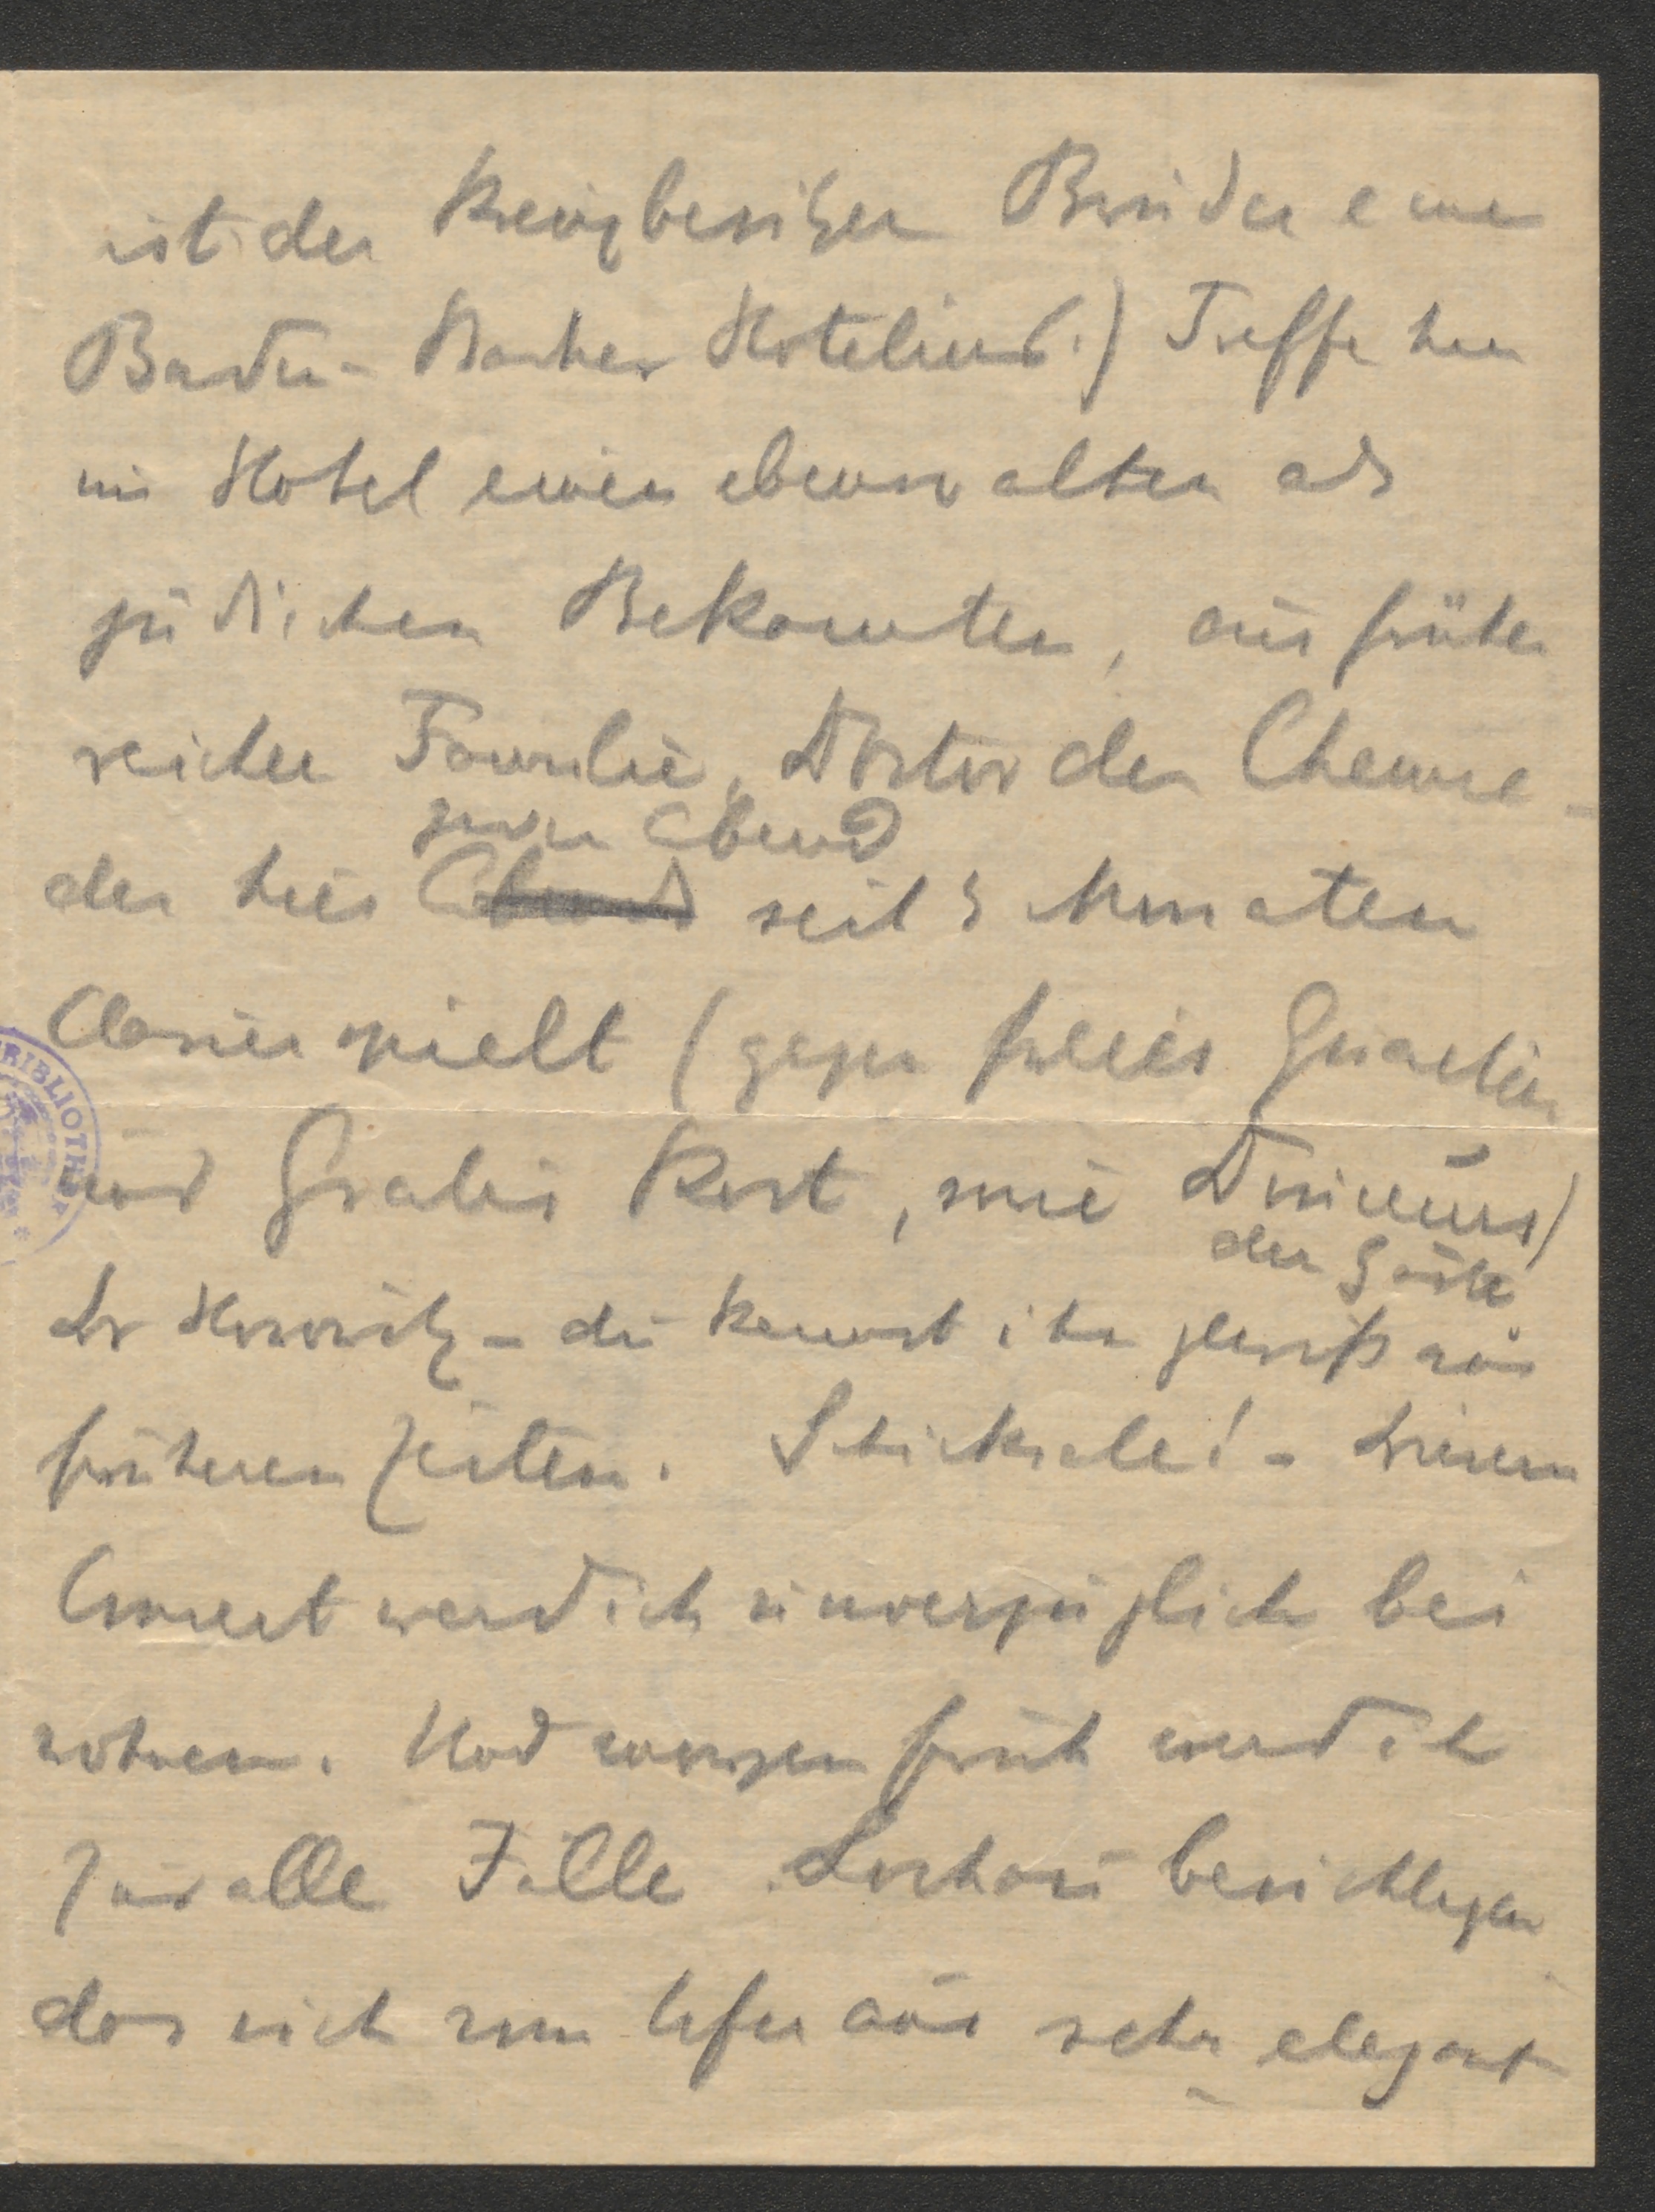 ist der Kreuzbesitzer Bruder einer
Baden-Badner Hotelierd.) Treffe hier
im Hotel einen ebenso alten als
jüdischen Bekannten, aus früher
reicher Familie, Doctor der Chemie -
zum Abend
der hier Abend seit 3 Monaten
Clavier spielt (gegen freies Quartier
und Gratis Kost, sowie Douceurs)
der Gäste
Dr Horovitz - du kennst ihn gewiß aus
früheren Zeiten. Schicksale! - Diesem
Concert werd ich unverzüglich bei
wohnen. Und morgen früh werd ich
für alle Fälle Lovhaus besichtigen
das sich vom Ufer aus sehr elegant
RIBLIOTH